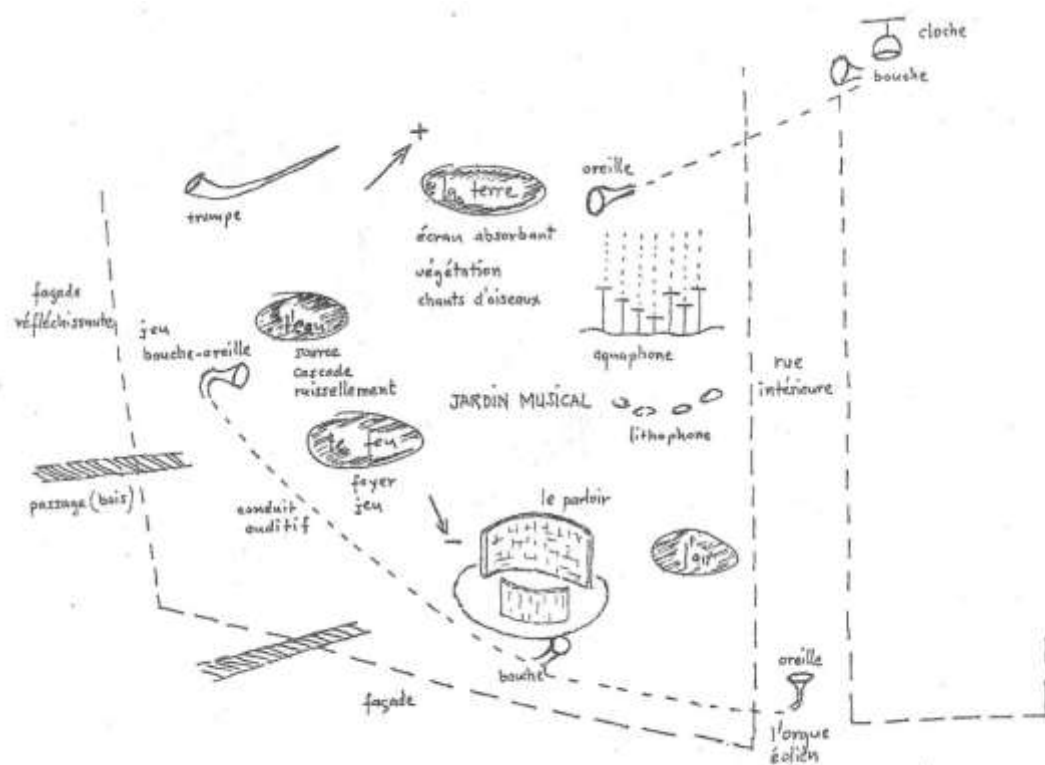 cloche
bouche
+
oreille
la terre
trompe
écran absorbant
végétation
chants d'oiseaux
façade
réfléchissante
jeu
bouche-oreille
l'eau
source
cascade
ruissellement
aquaphone
rue
intérieure
JARDIN MUSICAL
lithophone
le feu
foyer
jeu
passage (bois)
conduit
auditif
-
le parloir
l'air
bouche
façade
oreille
l'orgue
éolien